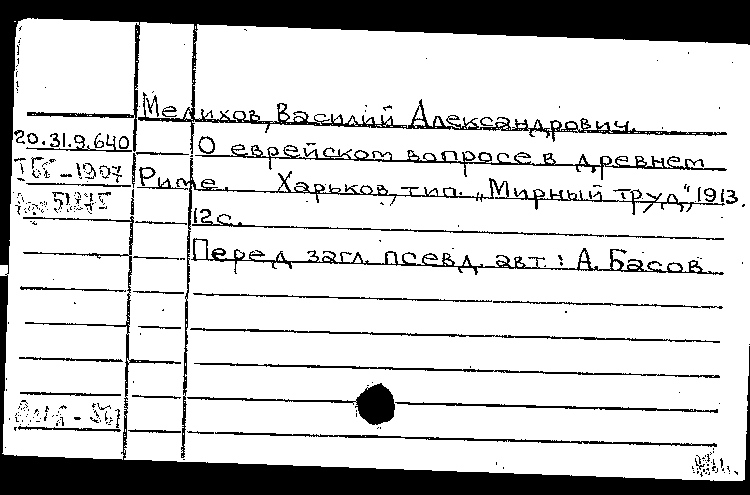 Мелихов, Василий Александрович.
20.31.9.640 О еврейском вопросе в древнем
ІББ-1907 Риме. Харьков, тип. „Мирный труд", 1913.
51275
12 с.
Перед загл. псевд. авт.: А. Басов